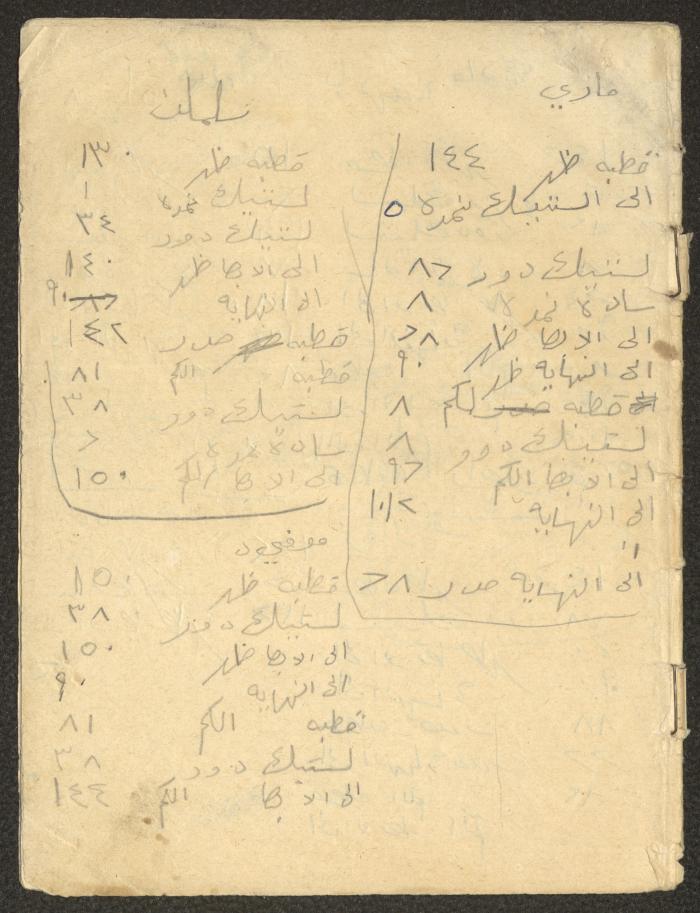 ماري
قطبه ظهر ١٤٤
الى الستيك نمرة ٥
لستيك دور ٨٦
سادة نمرة ٨
الى الابط ظهر ٢٨
الى النهايه ظهر ٩٠
قطبه صدر لكم ٨
لستيك دور ٨
الى الابط الكم ٩٦
الى النهايه
"
الى النهايه صدر ٢٨
سلمان
قطبه ظهر ١٣٠
لستيك نمرة ١
لستيك دور ٣٤
الى الابط ظهر ١٤٠
الى النهايه ٨٦ ٩٠
قطبه صدر ١٤٢
قطبه الكم ٨١
لستيك دور ٣٨
سادة نمرة ٢
الى الابط الكم ١٥٠
قطبه ظهر ١٥٠
لستيك دور ٣٨
الى الابط ظهر ١٥٠
الى النهايه ٩٠
قطبه الكم ٨١
لستيك دور ٣٨
الى الابط الكم ١٤٤